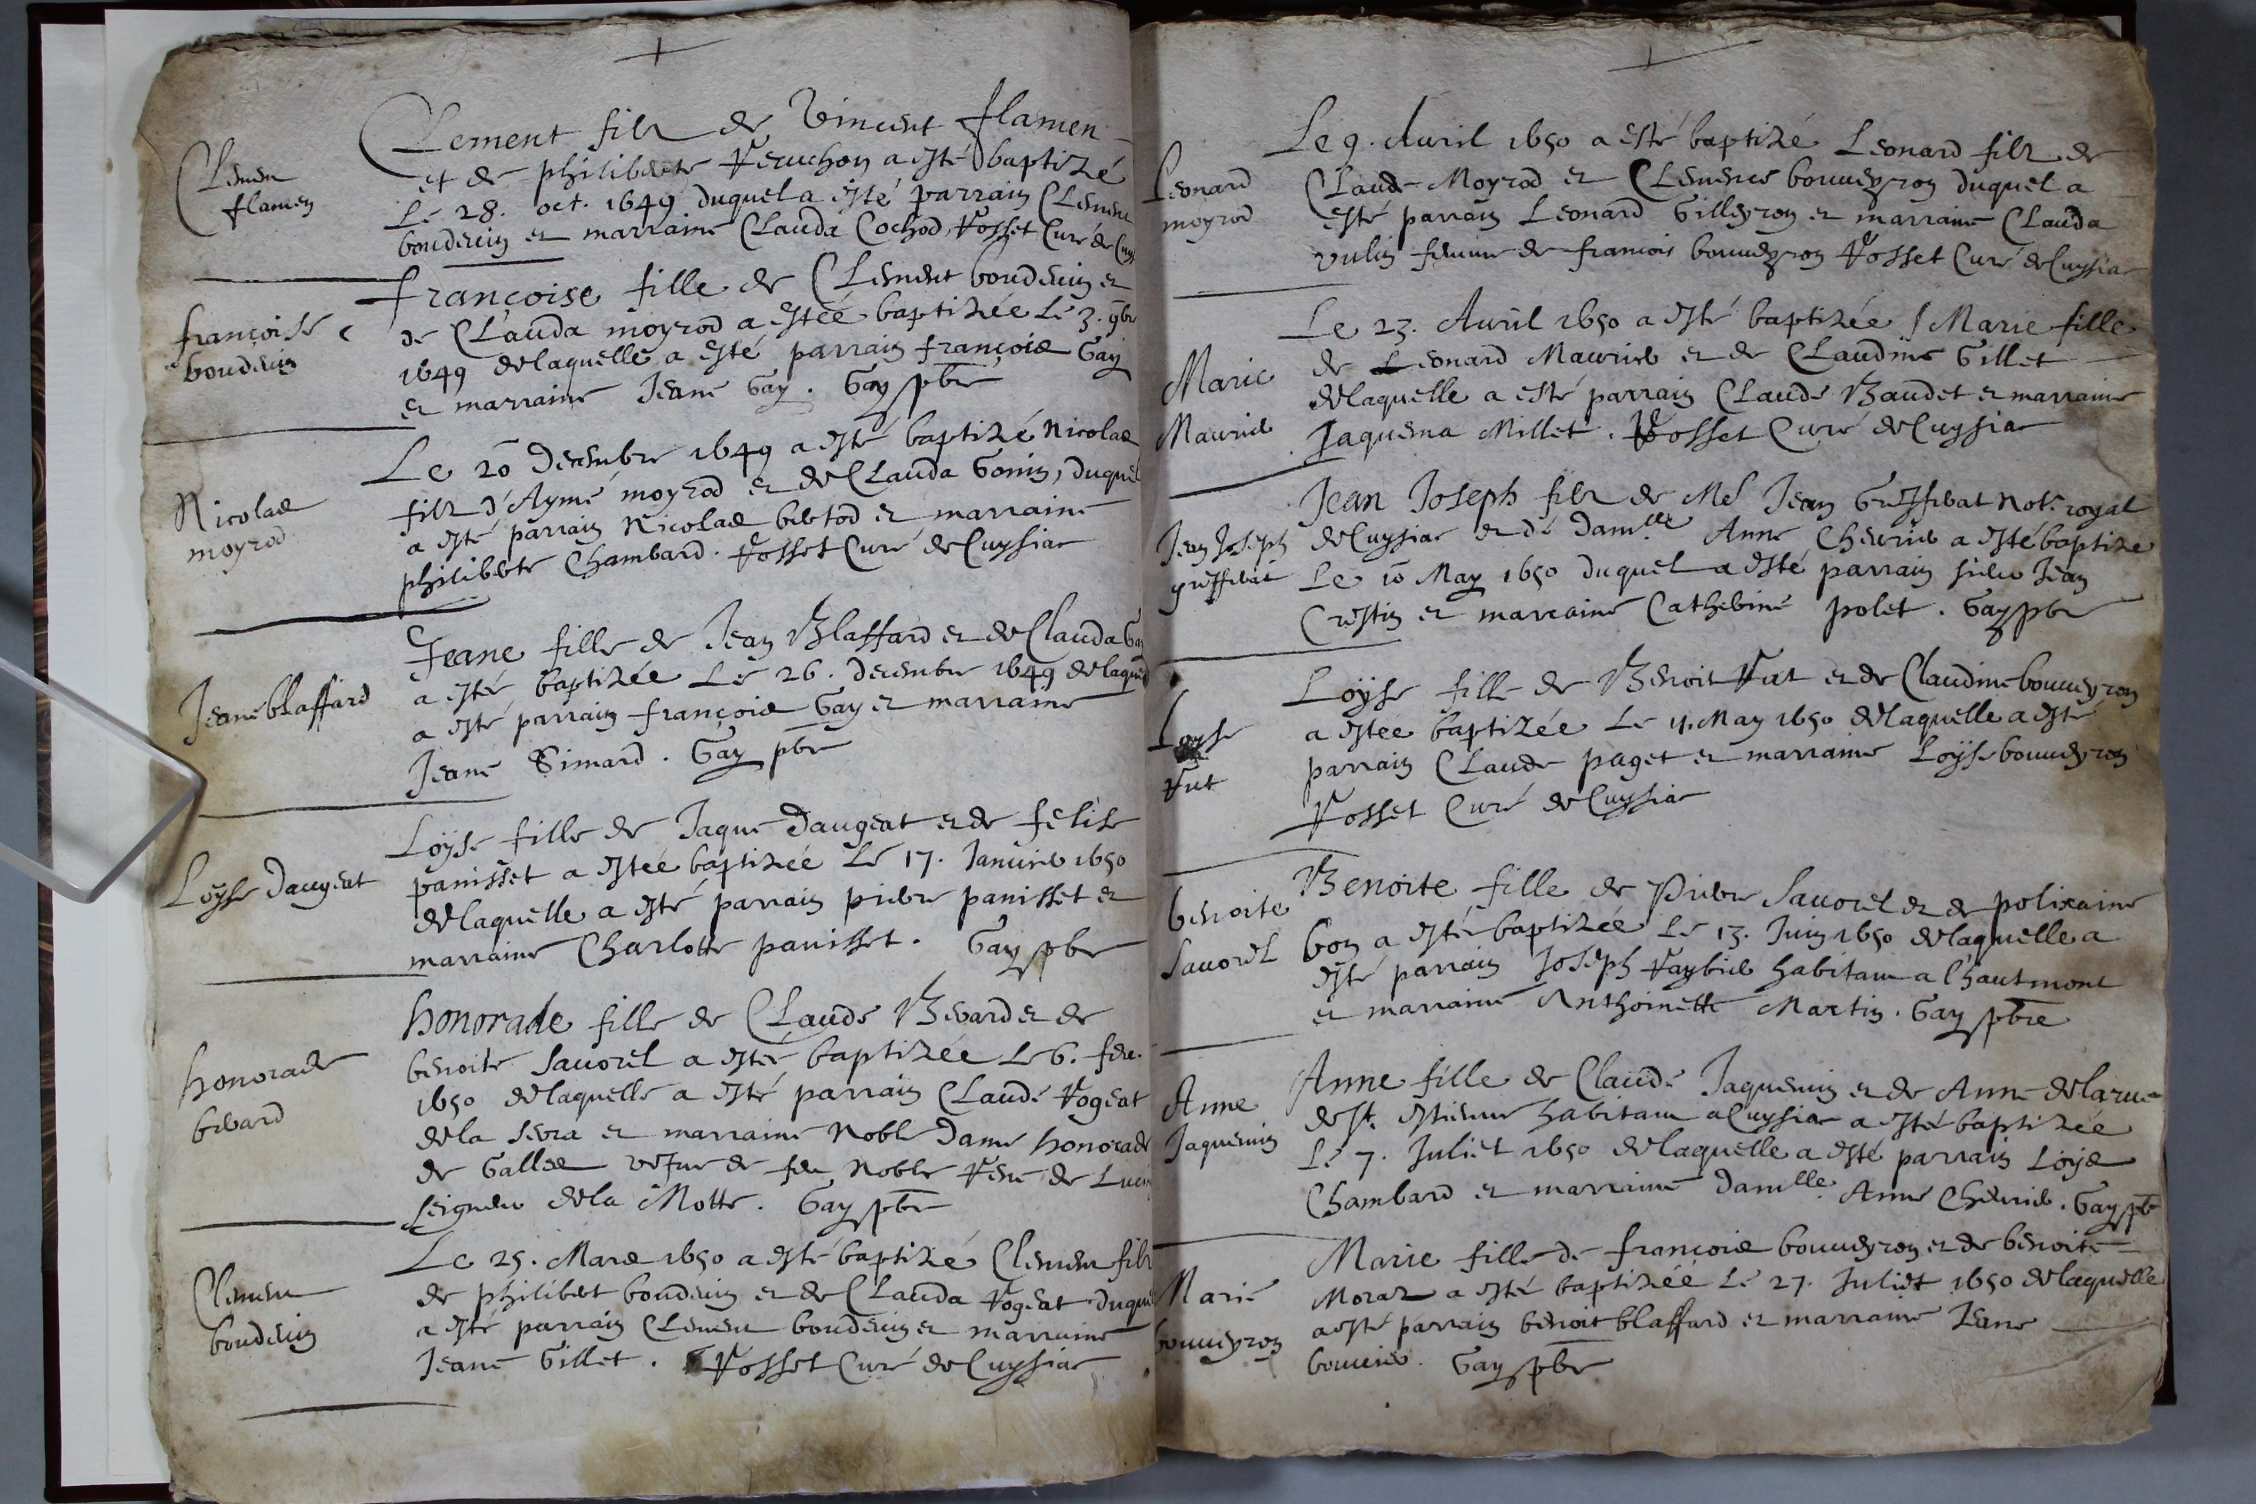 Clemen
flamen
Clement filz de Vincent flamen
et de philiberte Veruchon a esté baptizé
Le 28. oct. 1649 duquel a esté parrain Clement
bouderin et marraine Clauda Cochod, Vosset Curé de Cuys
françoise
bouderin
françoise fille de Clement bouderin et
de Clauda moyrod a estée baptizée Le 3. 9bre
1649 de laquelle a esté parrain françois Gay
et marraine Jeane Gay. Gay pbre
Nicolas
moyrod
Le 20 Decembre 1649 a esté baptizé Nicolas
filz d'Aymé moyrod et de Clauda Gonin, duquel
a esté parrain Nicolas bertod et marraine
philiberte Chambard. Vosset Curé de Cuysiac
Jeane blaffard
Jeane fille de Jean Blaffard et de Clauda
a estée baptizée Le 26. decembre 1649 de laquel
a esté parrain françois Gay et marraine
Jeane Simard. Gay pbre
Loyse Daugeat
Loyse fille de Jaque Daugeat et de felise
panisset a estée baptizée Le 17. Januier 1650
de laquelle a esté parrain pierre panisset et
marraine Charlotte panisset. Gay pbre
honorade
berard
honorade fille de Claude Berard et de
benoite Sauorel a estée baptizée Le 6. feu.
1650 de laquelle a esté parrain Claude Vogeat
de la serra et marraine Noble Dame honorade
de Galles vefue de feu Noble René de
seigneur de la Motte. Gay pbre
Clement
bouderin
Le 25. Mars 1650 a esté baptizé Clement filz
de philibert bouderin et de Clauda Vogeat duquel
a esté parrain Clement bouderin et marraine
Jeane Gillet. Vosset Curé de Cuysiac
Leonard
moyrod
Le 9. Auril 1650 a esté baptizé Leonard filz de
Claude Moyrod et Clemence bouueyron duquel a
esté parrain Leonard Gilleyron et marraine Clauda
vulin femme de francois bouueyron Vosset Curé de Cuysiac
Marie
Maurier
Le 23. Auril 1650 a esté baptizée Marie fille
de Leonard Maurier et de Claudine Gillet
de laquelle a esté parrain Claude Baudet et marraine
Jaquema Millet. Vosset Curé de Cuysiac
Jean Joseph
greffierat
Jean Joseph filz de Me Jean Not. royal
de Cuysiac et de damlle Anne Cheurier a esté baptizé
Le 10 May 1650 duquel a esté parrain sieur Jean
Crestin et marraine Catherine polet. Gay pbre
Loyse
Vut
Loyse fille de Benoit Vut et de Claudine bouueyron
a estée baptizée Le 11. May 1650 de laquelle a esté
parrain Claude paget et marraine Loyse bouueyron
Vosset Curé de Cuysiac
benoite
Sauorel
Benoite fille de Pierre Sauorel et de polixaine
bon a estée baptizée Le 13. Juin 1650 de laquelle a
esté parrain Joseph habitant a l'hautmont
et marraine Anthoinette Martin. Gay pbre
Anne
Jaquemin
Anne fille de Claude Jaquemin et de Anne de la rue
de st. estienne habitant a Cuysiac a estée baptizée
Le 7. Juliet 1650 de laquelle a esté parrain Loys
Chambard et marraine damlle Anne Cheurier. Gay pb
Marie
bouueyron
Marie fille de françois bouueyron et de benoite
Moraz a esté baptizée Le 27. Juliet 1650 de laquelle
a esté parrain benoit blaffard et marraine Jeane
bouuier. Gay pbre